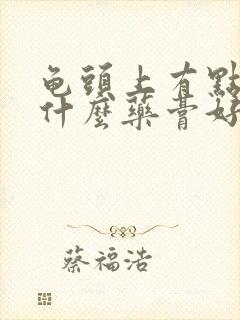 龟頭上有點
什麼藥膏好
蔡福浩